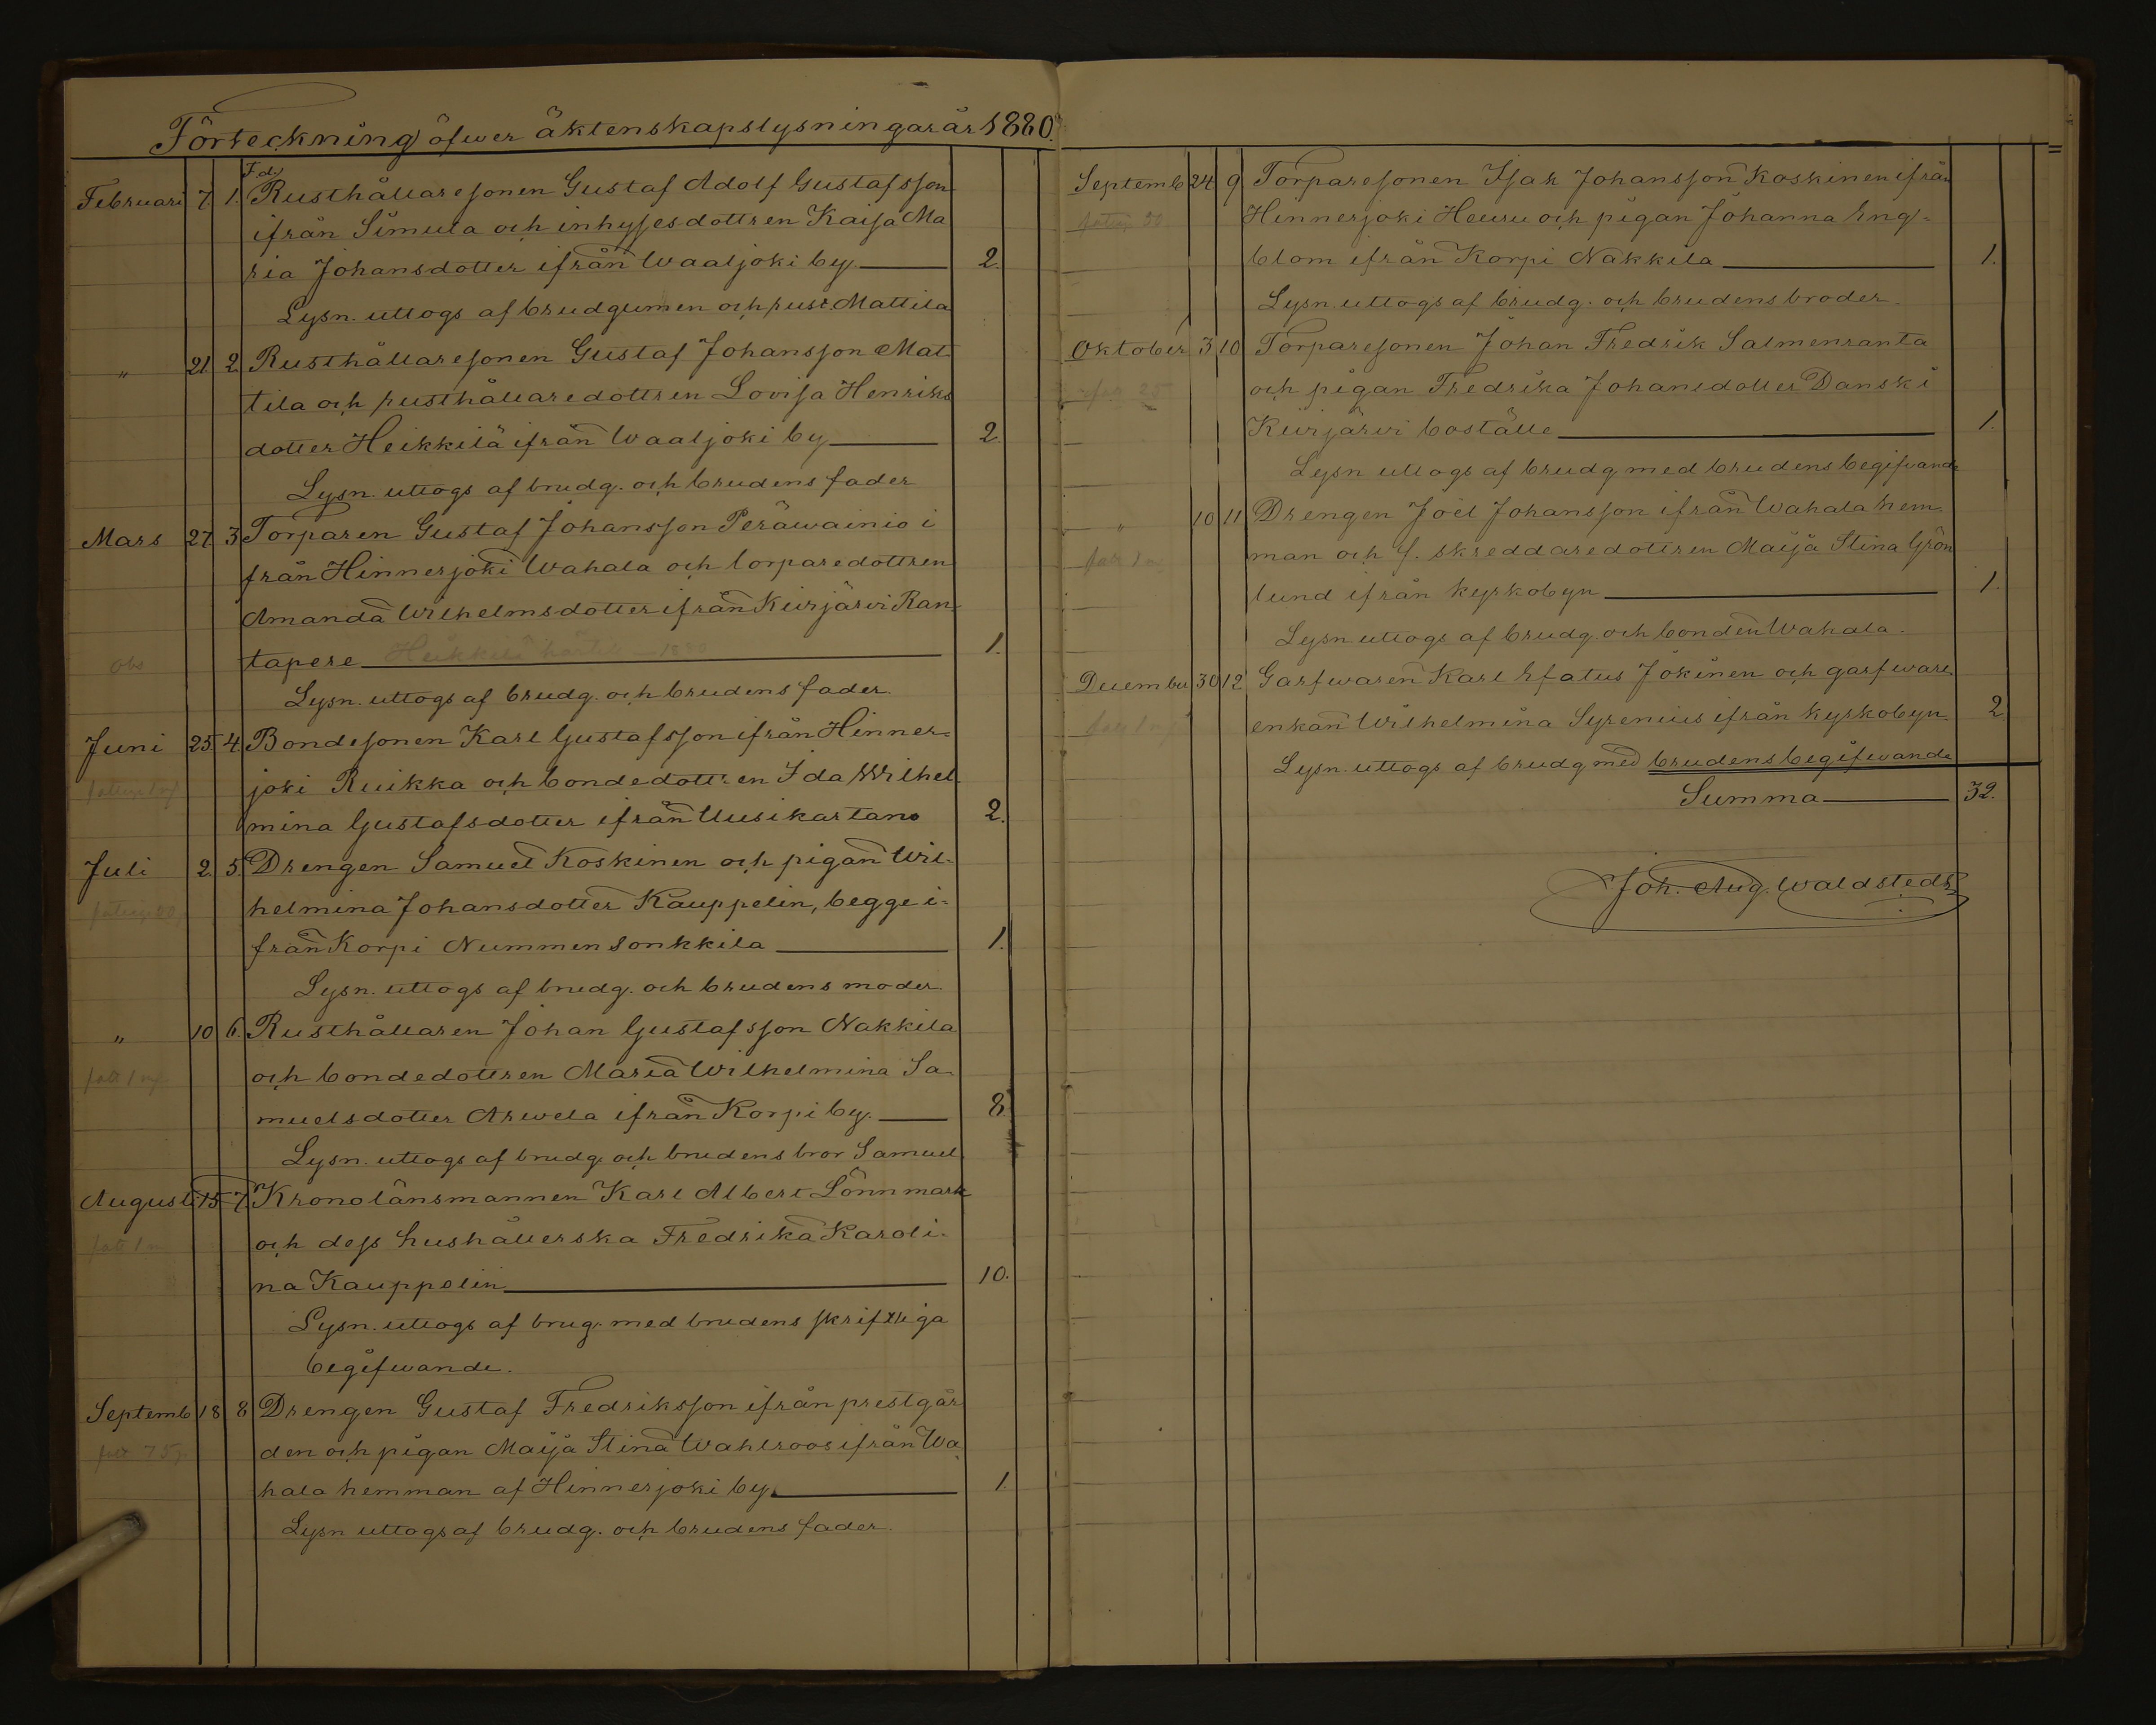 Förteckning öfwer äktenskapslysningar år 1880.
F.d.
Februari 7. 1. Rusthållaresonen Gustaf Adolf Gustafsson
ifrån Simula och inhysesdottren Kaisa Ma
ria Johansdotter ifrån Waaljoki by. 2.
Lysn. uttogs af brudgumen och rust. Mattila
" 21. 2. Rusthållaresonen Gustaf Johansson Mat
tila och rusthållaredottren Lovisa Henriks
dotter Heikkilä ifrån Waaljoki by 2.
Lysn. uttogs af brudg. och brudens fader
Mars 27. 3. Torparen Gustaf Johansson Peräwainio i
från Hinnerjoki Wahala och torparedottren
Amanda Wilhelmsdotter ifrån Kiirjärvi Ran-
obs tapere Heikkilä 1880 1.
Lysn. uttogs af brudg. och brudens fader.
Juni 25. 4. Bondesonen Karl Gustafsson ifrån Hinner-
joki Ruikka och bondedottren Ida Wilhel-
mina Gustafsdotter ifrån Uusikartano 2.
Juli 2. 5. Drengen Samuel Koskinen och pigan Wil-
helmina Johansdotter Kauppelin, begge i-
från Korpi Nummensonkkila 1.
Lysn. uttogs af brudg. och brudens moder.
" 10 6. Rusthållaren Johan Gustafsson Nakkila
fatt 1 mf. och bondedottren Maria Wilhelmina Sa-
muelsdotter Arwela ifrån Korpi by. 8.
Lysn. uttogs af brudg. och brudens bror Samuel
Augusti 15 7. Kronolänsmannen Karl Albert Lönnmark
fatt 1 m och dess hushållerska Fredrika Karoli-
na Kauppelin 10.
Lysn. uttogs af brug. med brudens skriftliga
begifwande.
Septemb 18 8 Drengen Gustaf Fredriksson ifrån prestgår
den och pigan Maija Stina Wahlroos ifrån Wa
hala hemman af Hinnerjoki by. 1.
Lysn uttogs af brudg. och brudens fader.
Septemb 24 9 Torparesonen Isak Johansson Koskinen ifrån
Hinnerjoki Heuru och pigan Johanna Eng-
blom ifrån Korpi Nakkila 1.
Lysn. uttogs af brudg. och brudens broder.
Oktober 3 10 Torparesonen Johan Fredrik Salmenranta
och pigan Fredrika Johansdotter Danski
Kiirjärvi boställe 1.
Lysn uttogs af brudg med brudens begifvande
" 10 11 Drengen Joël Johansson ifrån Wahala hem-
fatt 1 m man och f. skreddaredottren Maija Stina Grön
lund ifrån kyrkobyn 1.
Lysn uttogs af brudg. och bonden Wahala.
December 30 12 Garfwaren Karl Efatus Jokinen och garfware
enkan Wilhelmina Syrenius ifrån kyrkobyn. 2.
Lysn. uttogs af brudg med brudens begifwande
Summa 32.
Joh. Aug. Waldstedt